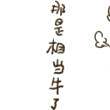 那是相当牛了